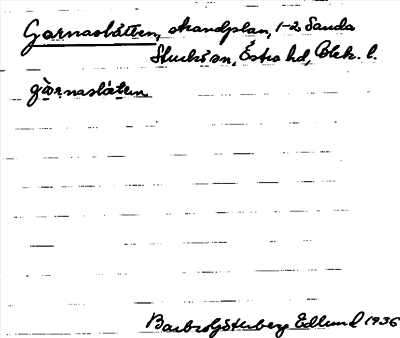 Garnaslätten, strandplan, 1-2, Sanda
Sturkö sn, Östra hd, Blek. l.
gà̱rnaslä́ten
Barbro Göterberg Edlund 1936